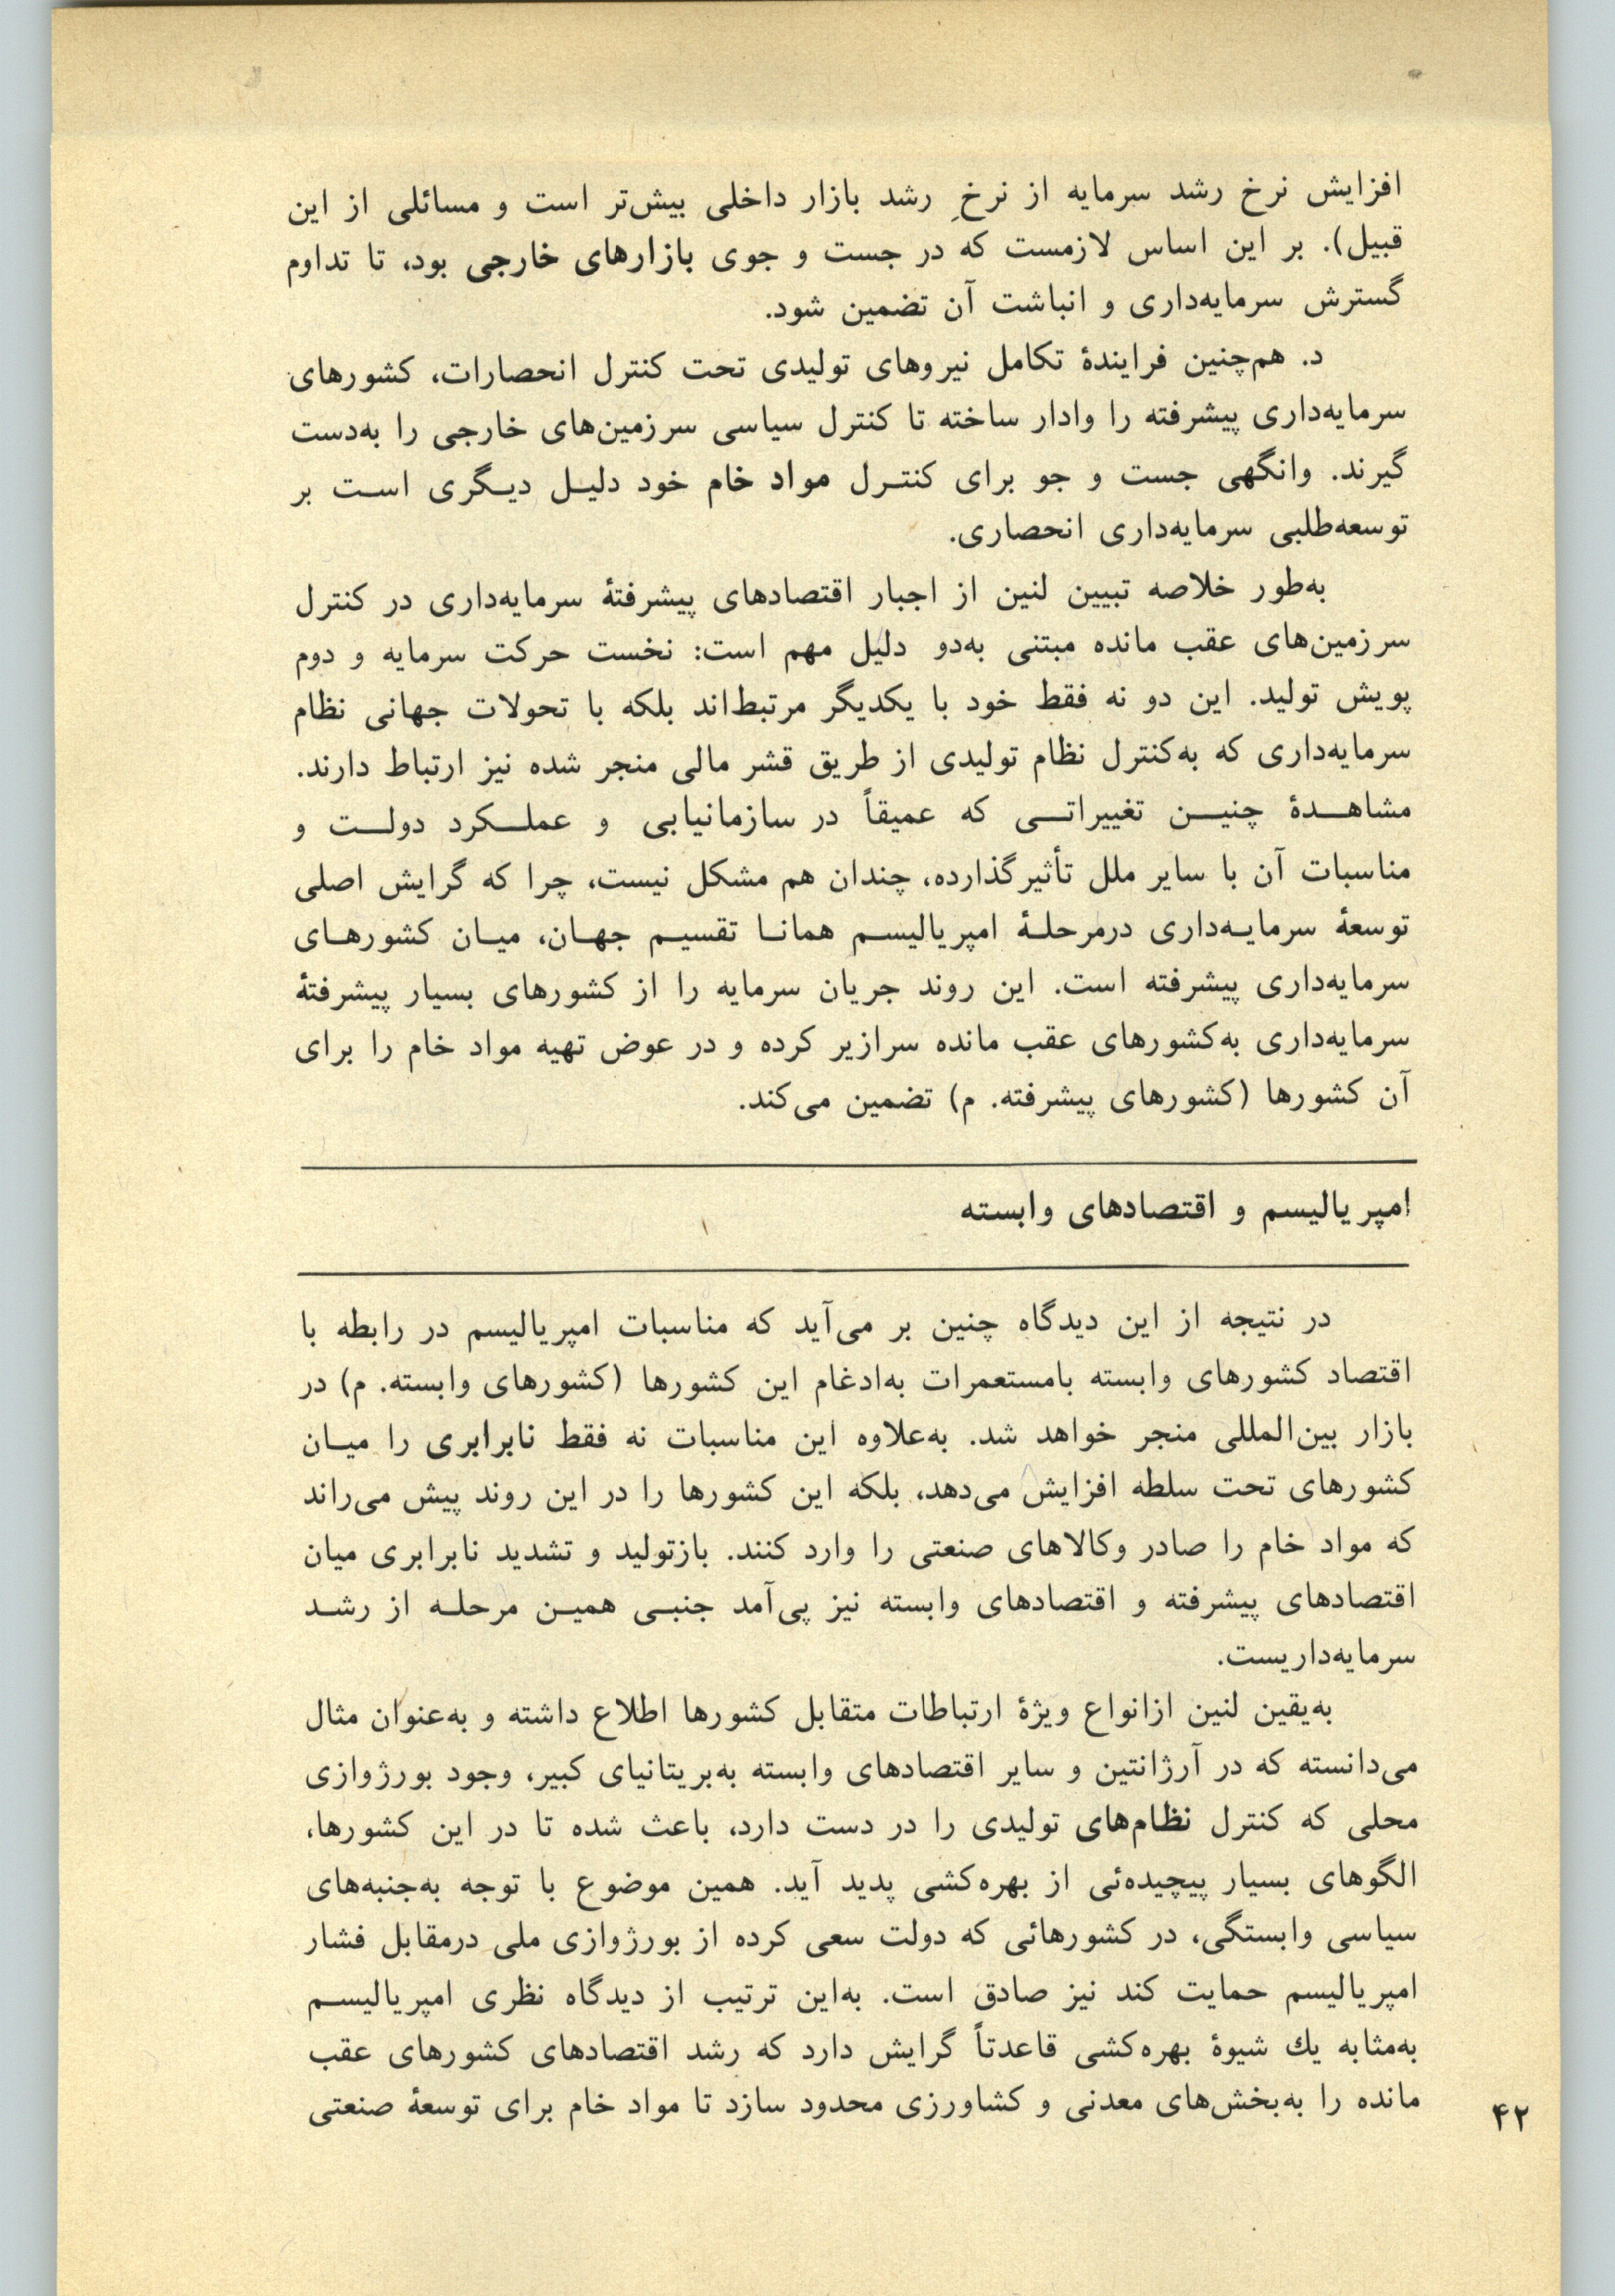 افزایش نرخ رشد سرمایه از نرخِ رشد بازار داخلی بیش‌تر است و مسائلی از این
قبیل). بر این اساس لازمست که در جست و جوی بازارهای خارجی بود، تا تداوم
گسترش سرمایه‌داری و انباشت آن تضمین شود.
د. هم‌چنین فرایندهٔ تکامل نیروهای تولیدی تحت کنترل انحصارات، کشورهای
سرمایه‌داری پیشرفته را وادار ساخته تا کنترل سیاسی سرزمین‌های خارجی را به‌دست
گیرند. وانگهی جست و جو برای کنتـرل مواد خام خود دلیـل دیـگری اسـت بر
توسعه‌طلبی سرمایه‌داری انحصاری.
به‌طور خلاصه تبیین لنین از اجبار اقتصادهای پیشرفتهٔ سرمایه‌داری در کنترل
سرزمین‌های عقب مانده مبتنی به‌دو دلیل مهم است: نخست حرکت سرمایه و دوم
پویش تولید. این دو نه فقط خود با یکدیگر مرتبط‌اند بلکه با تحولات جهانی نظام
سرمایه‌داری که به‌کنترل نظام تولیدی از طریق قشر مالی منجر شده نیز ارتباط دارند.
مشاهـــدهٔ چنیـــن تغییراتـــی که عمیقاً در سازمانیابی و عملـــکرد دولـــت و
مناسبات آن با سایر ملل تأثیرگذارده، چندان هم مشکل نیست، چرا که گرایش اصلی
توسعهٔ سرمایـه‌داری درمرحلـهٔ امپریالیسـم همانـا تقسیـم جهـان، میـان کشورهـای
سرمایه‌داری پیشرفته است. این روند جریان سرمایه را از کشورهای بسیار پیشرفتهٔ
سرمایه‌داری به‌کشورهای عقب مانده سرازیر کرده و در عوض تهیه مواد خام را برای
آن کشورها (کشورهای پیشرفته. م) تضمین می‌کند.
امپریالیسم و اقتصادهای وابسته
در نتیجه از این دیدگاه چنین بر می‌آید که مناسبات امپریالیسم در رابطه با
اقتصاد کشورهای وابسته بامستعمرات به‌ادغام این کشورها (کشورهای وابسته. م) در
بازار بین‌المللی منجر خواهد شد. به‌علاوه این مناسبات نه فقط نابرابری را میـان
کشورهای تحت سلطه افزایش می‌دهد، بلکه این کشورها را در این روند پیش می‌راند
که مواد خام را صادر وکالاهای صنعتی را وارد کنند. بازتولید و تشدید نابرابری میان
اقتصادهای پیشرفته و اقتصادهای وابسته نیز پی‌آمد جنبـی همیـن مرحلـه از رشـد
سرمایه‌داریست.
به‌یقین لنین ازانواع ویژهٔ ارتباطات متقابل کشورها اطلاع داشته و به‌عنوان مثال
می‌دانسته که در آرژانتین و سایر اقتصادهای وابسته به‌بریتانیای کبیر، وجود بورژوازی
محلی که کنترل نظام‌های تولیدی را در دست دارد، باعث شده تا در این کشورها،
الگوهای بسیار پیچیده‌ئی از بهره‌کشی پدید آید. همین موضوع با توجه به‌جنبه‌های
سیاسی وابستگی، در کشورهائی که دولت سعی کرده از بورژوازی ملی درمقابل فشار
امپریالیسم حمایت کند نیز صادق است. به‌این ترتیب از دیدگاه نظری امپریالیسـم
به‌مثابه یك شیوهٔ بهره‌کشی قاعدتاً گرایش دارد که رشد اقتصادهای کشورهای عقب
مانده را به‌بخش‌های معدنی و کشاورزی محدود سازد تا مواد خام برای توسعهٔ صنعتی
۴۲